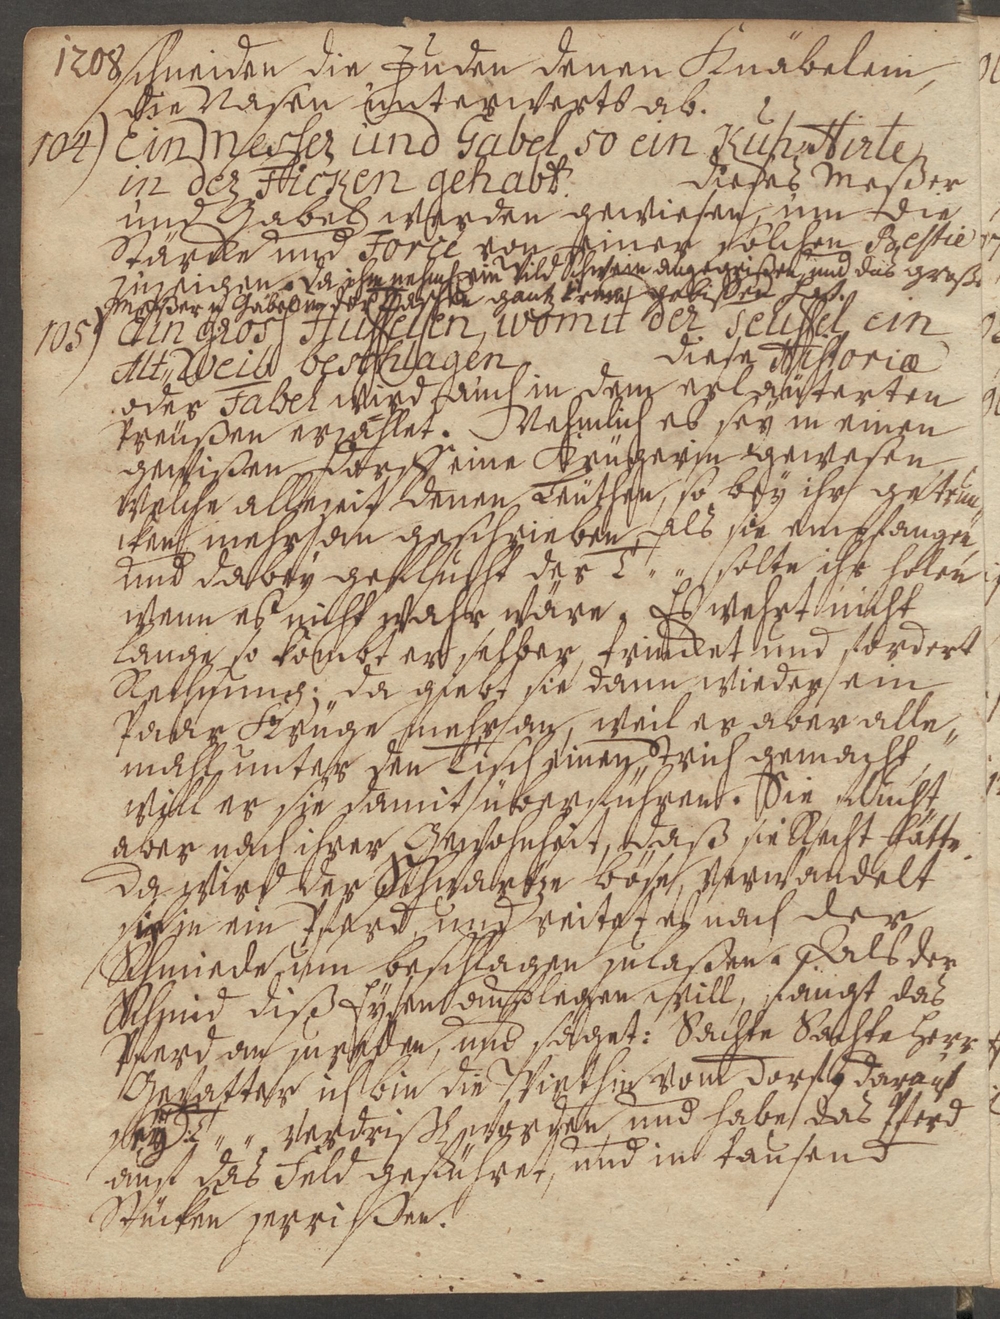 1208
schneiden die Juden denen Knäbelein,
die Nasen unterwerts ab.
104) Ein Messer und Gabel, so ein Kuh-Hirte,
in der Ficken gehabt. Dieses Meßer
und Gabel werden gewiesen, um die
Stärcke und Force von einer solchen Bestie
zuzeigen. Da ihn nemlich ein Wild Schwein angegrißen und das große
Meßer u Gabel in der Tasche gantz krum gebißen hat.
105) Ein gros Huffeisen, womit der Teuffel ein
Alt-Weib beschlagen Diese Historiæ
oder Fabel wird auch in dem erläuterten
Preußen erzählet. Nehmlich es seÿ in einen
gewißen Dorff eine Krügerin gewesen,
Welche allezeit denen Leuthen, so beÿ ihr getrun-
cken mehr an geschrieben, als sie empfangen,
und dabeÿ geflucht der T „ „ solte ihr holen
wenn es nicht wahr wäre. Es wehrt nicht
lange, so kömbt er selber, trincket und fordert
Rechnung; da giebt sie dann wieder ein
Paar Krüge mehr an, weil er aber alle„
mahl unter den Tisch einen Strich gemacht,
will er sie damit überführen. Sie flucht
aber nach ihrer Gewohnheit, daß sie Recht hätte.
Da wird der Schwartze böse, verwandelt
sie in ein Pferd, und reitet es nach der
Schmiede, um beschlagen zulaßen. Als der
Schmid diß Eÿsen aufflegen will, fängt das
Pferd an zureden, und saget: Sachte Sachte Herr
Gevatter ich bin die Wirthin vom Dorff, darauf
seÿ d. T „ „ verdrißl. worden und habe das Pferd
auf das Feld geführet, und in tausend
Stücken zerrißen.